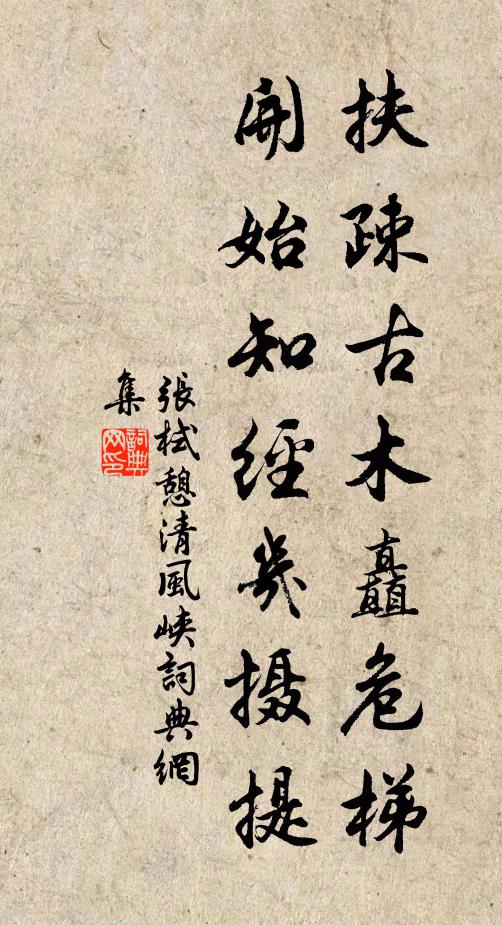 扶疎古木矗危梯
開始知經幾摄提
張栻憩清風峽詞典網
集
詞典
网印